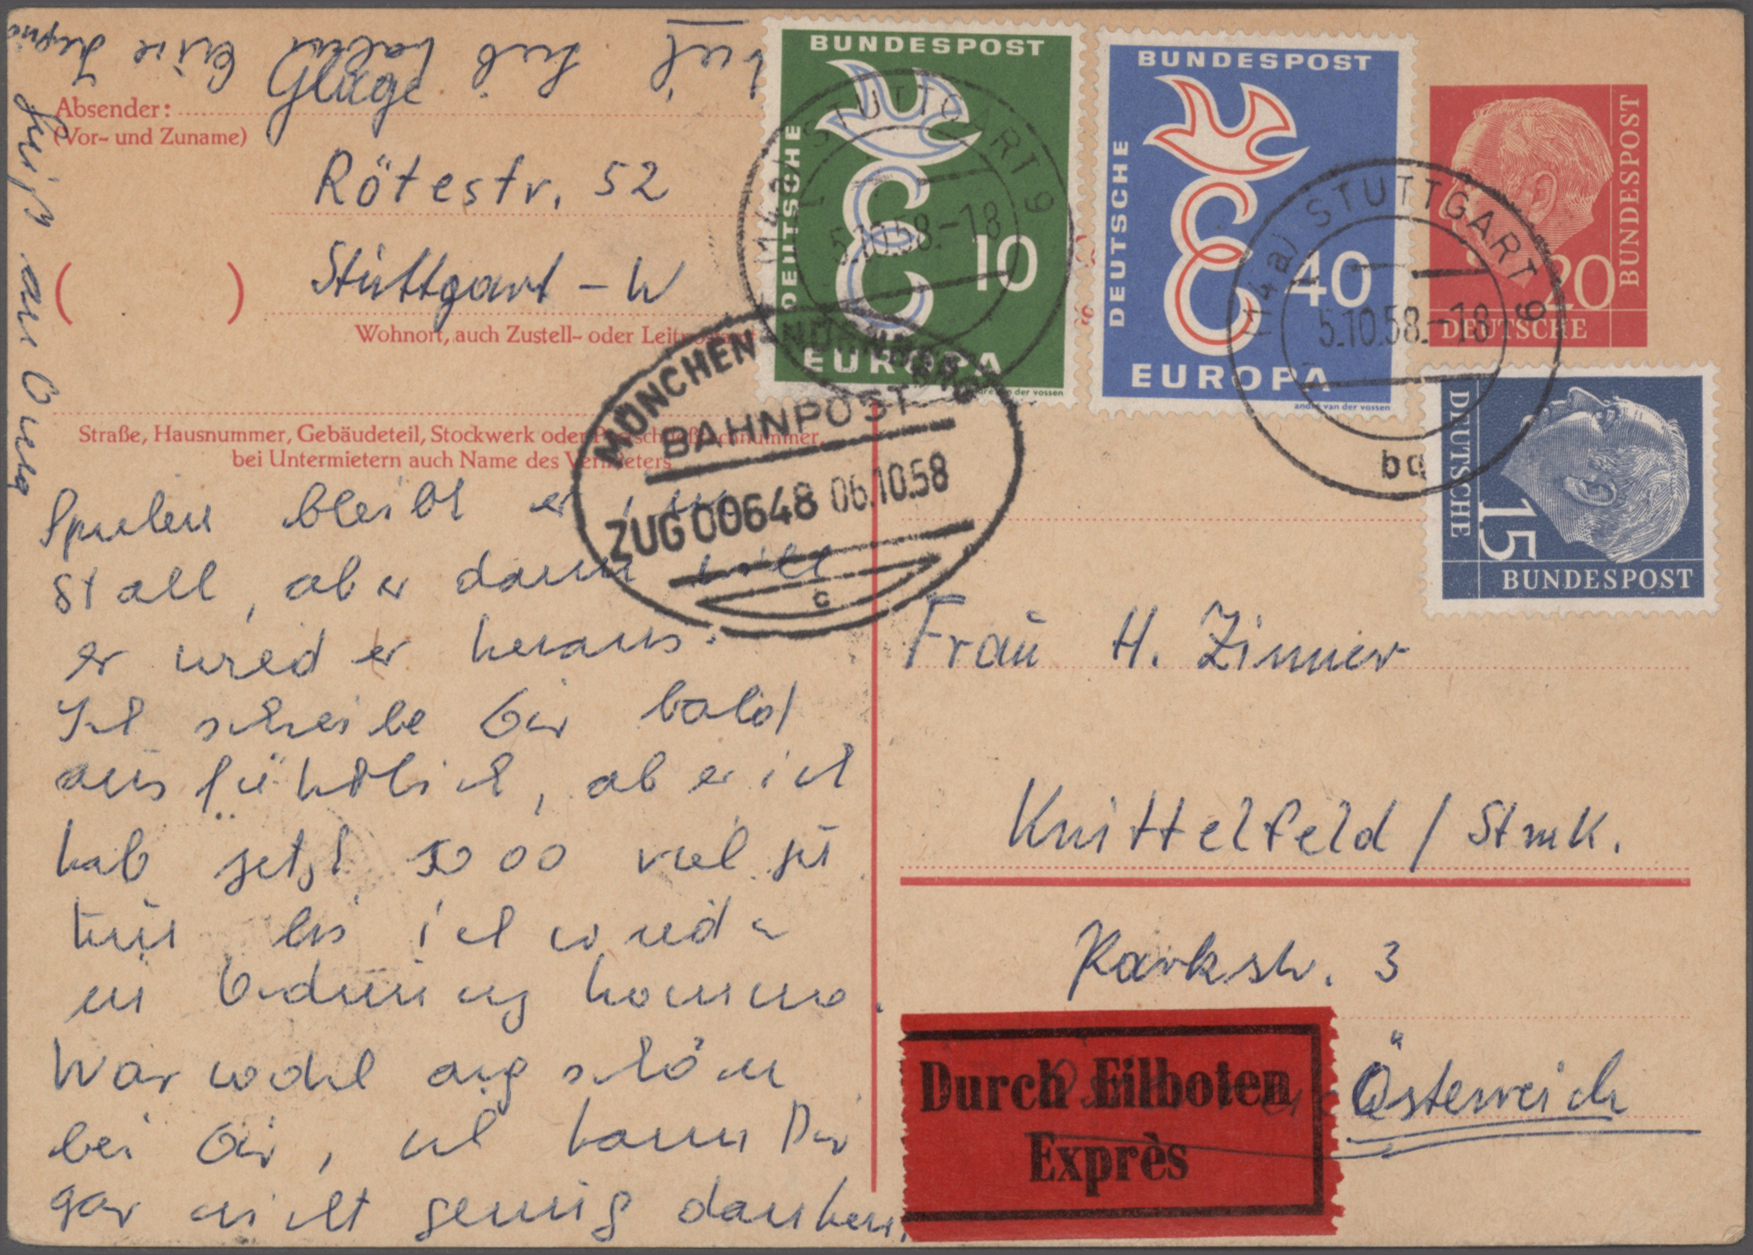 Absender:
Gluge
(Vor- und Zuname)
Rötestr. 52
Stuttgart - W
( )
Wohnort, auch Zustell- oder
Straße, Hausnummer, Gebäudeteil, Stockwerk oder
bei Untermietern auch Name des Vermieters
bleibt er im
Stall, aber dann will
er wied er heraus.
Ich schreibe Dir bald
ausführlich, aber ich
hab jetzt sooo viel zu
tun bis ich wieder
in Ordnung komme.
War wohl arg schön
bei Dir, ich kann Dir
gar nicht genug danken,
BUNDESPOST
DEUTSCHE
10
EUROPA
BUNDESPOST
DEUTSCHE
40
EUROPA
andré van der vossen
BUNDESPOST
20
DEUTSCHE
DEUTSCHE
15
BUNDESPOST
(14a) STUTTGART 9
5.10.58.-18
(14a) STUTTGART 9
5.10.58.-18
bq
MÜNCHEN-NÜRNBERG
BAHNPOST
ZUG 00648 06.10.58
c
Frau H. Zinner
Knittelfeld / Stmk.
Parkstr. 3
Österreich
Durch Eilboten
Exprès